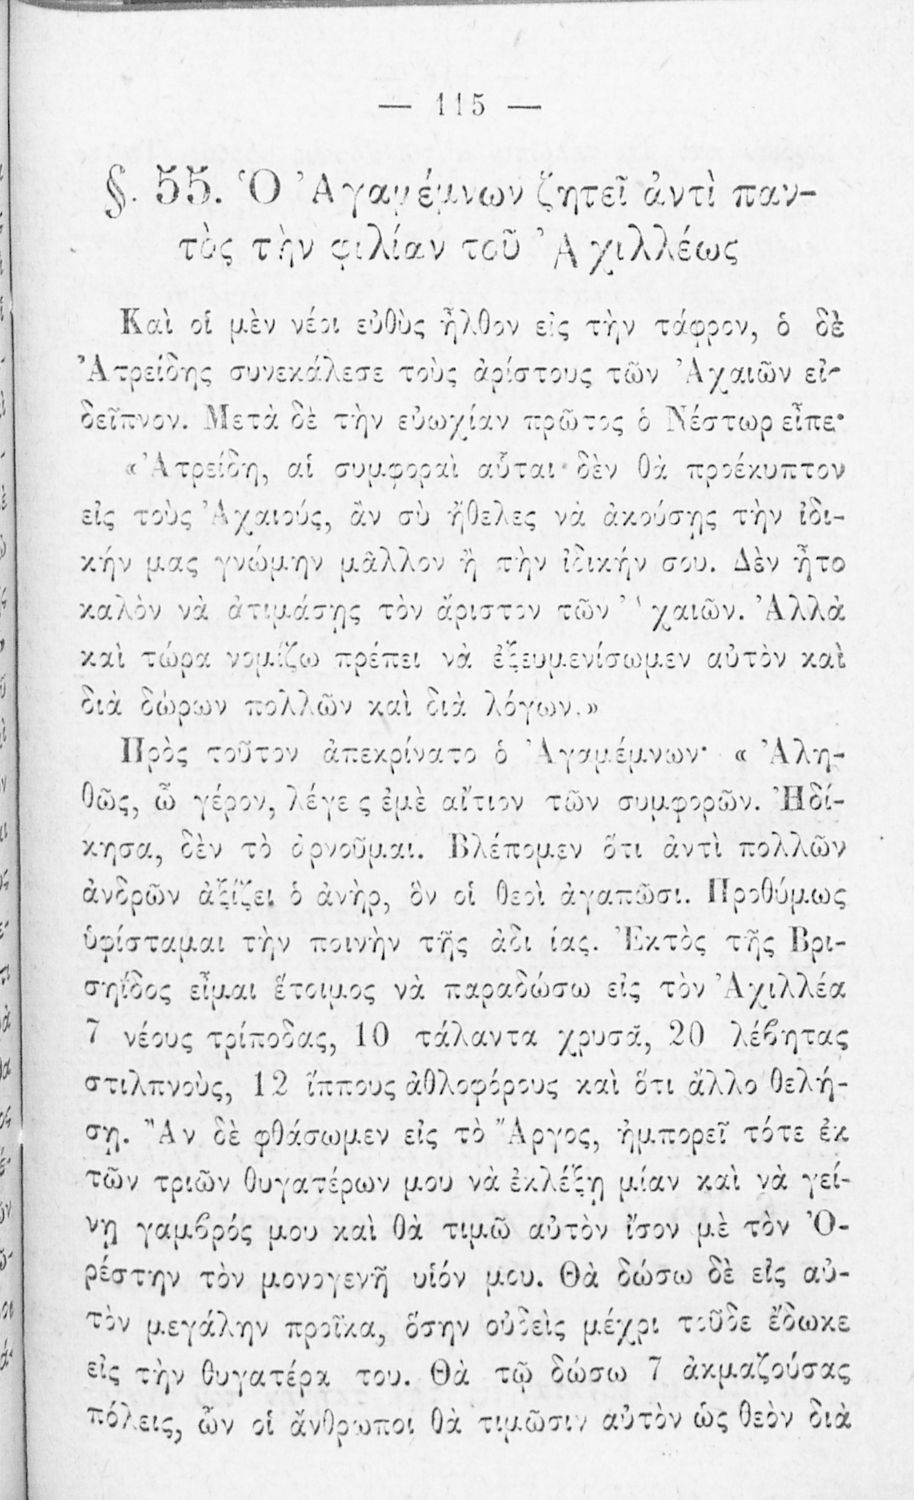 — 115 —
§. 55. Ὁ Ἀγαμέμνων ζητεῖ ἀντὶ παν-
τὸς τὴν φιλίαν τοῦ Ἀχιλλέως
Καὶ οἱ μὲν νέοι εὐθὺς ἦλθον εἰς τὴν τάφρον, ὁ δὲ
Ἀτρείδης συνεκάλεσε τοὺς ἀρίστους τῶν Ἀχαιῶν εἰς
δεῖπνον. Μετὰ δὲ τὴν εὐωχίαν πρῶτος ὁ Νέστωρ εἶπε·
«Ἀτρείδη, αἱ συμφοραὶ αὗται δὲν θὰ προέκυπτον
εἰς τοὺς Ἀχαιούς, ἂν σὺ ἤθελες νὰ ἀκούσῃς τὴν ἰδι-
κήν μας γνώμην μᾶλλον ἢ τὴν ἰδικήν σου. Δὲν ἦτο
καλὸν νὰ ἀτιμάσῃς τὸν ἄριστον τῶν Ἀχαιῶν. Ἀλλὰ
καὶ τώρα νομίζω πρέπει νὰ ἐξευμενίσωμεν αὐτὸν καὶ
διὰ δώρων πολλῶν καὶ διὰ λόγων.»
Πρὸς τοῦτον ἀπεκρίνατο ὁ Ἀγαμέμνων· « Ἀλη-
θῶς, ὦ γέρον, λέγεις ἐμὲ αἴτιον τῶν συμφορῶν. Ἠδί-
κησα, δὲν τὸ ἀρνοῦμαι. Βλέπομεν ὅτι ἀντὶ πολλῶν
ἀνδρῶν ἀξίζει ὁ ἀνὴρ, ὃν οἱ θεοὶ ἀγαπῶσι. Προθύμως
ὑφίσταμαι τὴν ποινὴν τῆς ἀδικίας. Ἐκτὸς τῆς Βρι-
σηΐδος εἶμαι ἕτοιμος νὰ παραδώσω εἰς τὸν Ἀχιλλέα
7 νέους τρίποδας, 10 τάλαντα χρυσᾶ, 20 λέβητας
στιλπνοὺς, 12 ἵππους ἀθλοφόρους καὶ ὅτι ἄλλο θελή-
σῃ. Ἂν δὲ φθάσωμεν εἰς τὸ Ἄργος, ἠμπορεῖ τότε ἐκ
τῶν τριῶν θυγατέρων μου νὰ ἐκλέξῃ μίαν καὶ νὰ γεί-
νῃ γαμβρός μου καὶ θὰ τιμῶ αὐτὸν ἴσον μὲ τὸν Ὀ-
ρέστην τὸν μονογενῆ υἱόν μου. Θὰ δώσω δὲ εἰς αὐ-
τὸν μεγάλην προῖκα, ὅσην οὐδεὶς μέχρι τοῦδε ἔδωκε
εἰς τὴν θυγατέρα του. Θὰ τῷ δώσω 7 ἀκμαζούσας
πόλεις, ὧν οἱ ἄνθρωποι θὰ τιμῶσιν αὐτὸν ὡς θεὸν διὰ